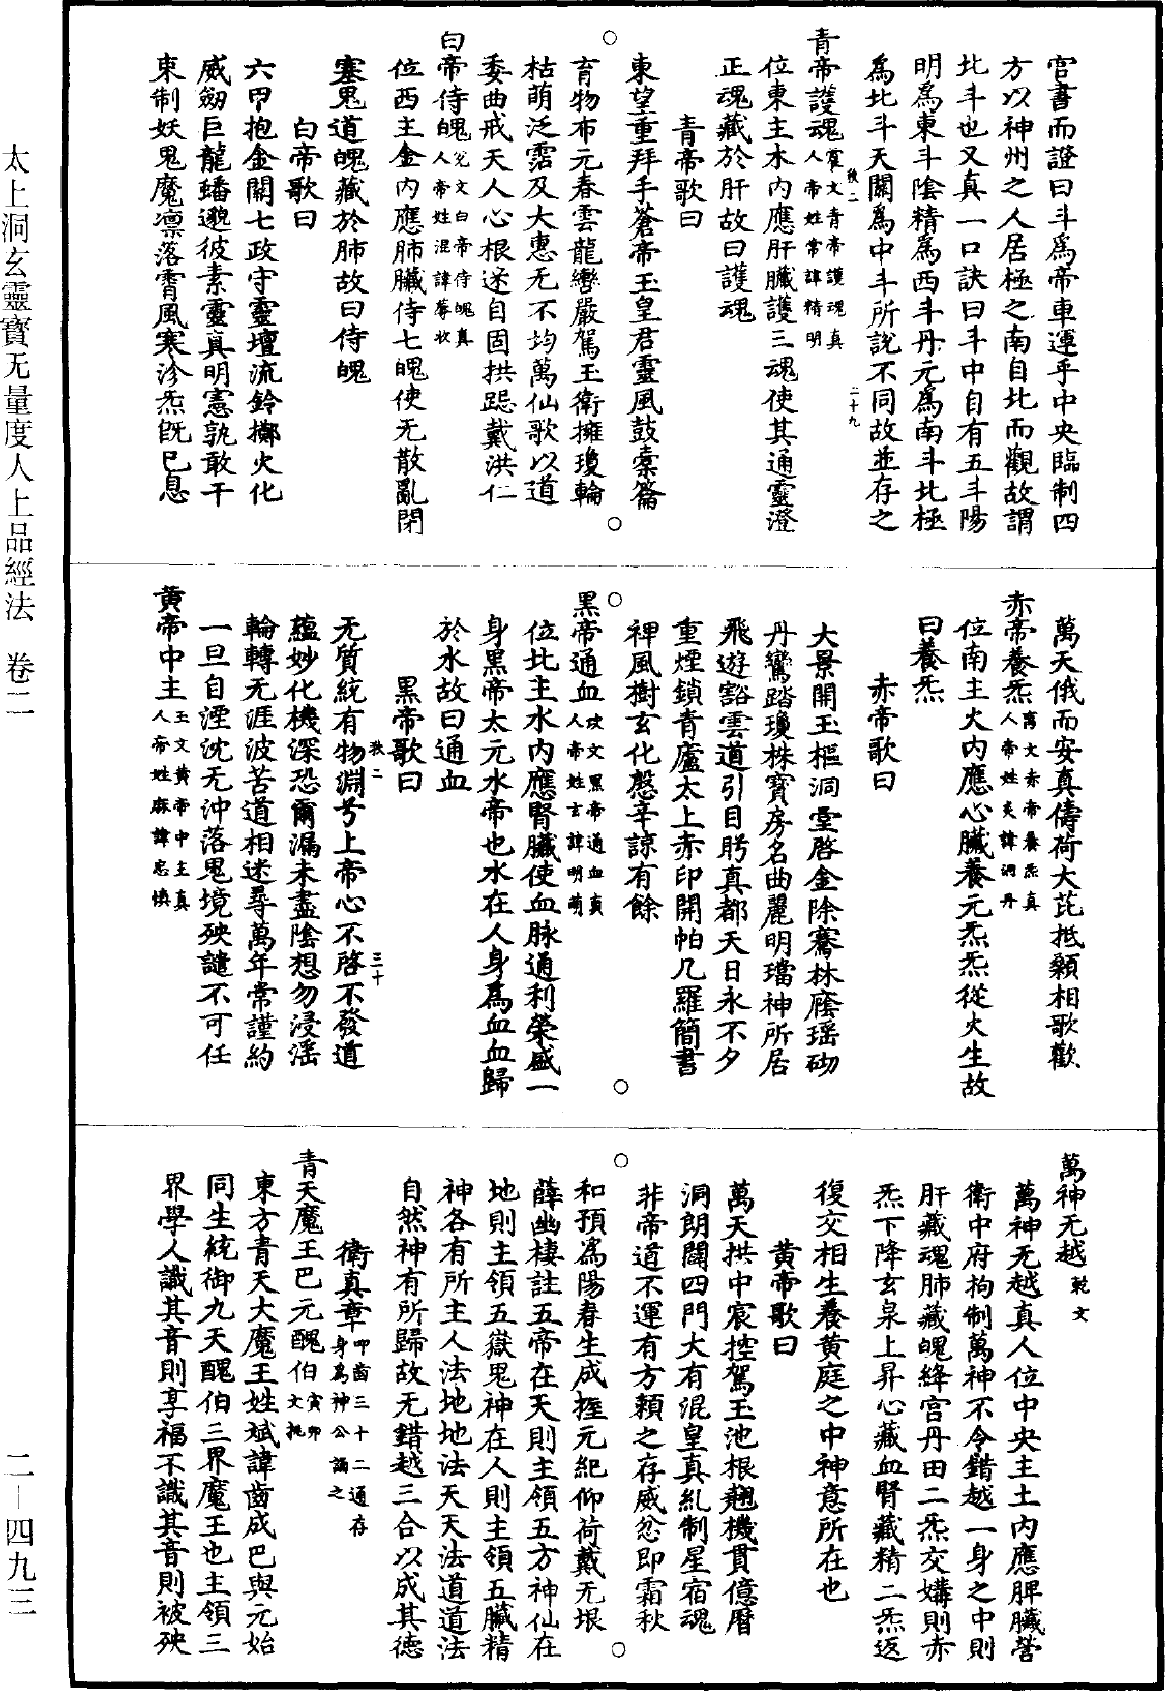 宫書而證曰斗爲帝車運乎中央臨制四
方以神州之人居極之南自北而觀故謂
北斗也又真一口訣曰斗中自有五斗陽
明爲東斗陰精爲西斗丹元爲南斗北極
爲北斗天關爲中斗所説不同故並存之
二十九
青帝護魂
文青帝護魂真
人帝姓常諱精明
位東主木内應肝臟護三魂使其通靈澄
正魂藏於肝故曰護魂
青帝歌曰
東望重拜手蒼帝玉皇君靈風鼓橐籥
育物布元春雲龍轡嚴駕玉衛擁瓊輪
枯萌泛霑及大惠无不均萬仙歌以道
委曲戒天人心根遂自固拱跽戴洪仁
白帝侍魄
兊文白帝侍魄真
人帝姓混諱蓐收
位西主金内應肺臟侍七魄使无散亂閉
塞鬼道魄藏於肺故曰侍魄
白帝歌曰
六甲抱金關七政守靈壇流鈴擲火化
威劒巨龍蟠邈彼素靈真明憲孰敢干
束制妖鬼魔凛落霄風寒沴炁旣已息
萬天俄而安真儔荷大芘抵顙相歌歡
赤帝養炁
离文赤帝養炁真
人帝姓炎諱洞丹
位南主火内應心臟養元炁炁從火生故
曰養炁
赤帝歌曰
大景開玉樞洞堂啓金除騫林廕瑶砌
丹鸞踏瓊株寶房名曲麗明璫神所居
飛遊豁雲道引目眄真都天日永不夕
重煙鎖青廬太上赤印開帕几羅簡書
裨風樹玄化慇辛諒有餘
黑帝通血
坎文黑帝通血真
人帝姓玄諱明萌
位北主水内應腎臟使血脉通利榮盛一
身黑帝太元水帝也水在人身爲血血歸
於水故曰通血
黑帝歌曰
三十
无質統有物淵兮上帝心不啓不發道
藴妙化機深恐爾漏未盡陰想勿浸滛
輪轉无涯波苦道相迷尋萬年常謹約
一旦自湮沈无沖落鬼境殃譴不可任
黄帝中主
玉文黄帝中主真
人帝姓麻諱忠慎
萬神无越
乾文
萬神无越真人位中央主土内應脾臟營
衛中府拘制萬神不令錯越一身之中則
肝藏魂肺藏魄絳宫丹田二炁交媾則赤
炁下降玄泉上昇心藏血腎藏精二炁返
復交相生養黄庭之中神意所在也
黄帝歌曰
萬天拱中宸控駕玉池根翹機貫億曆
洞朗闢四門大有混皇真糺制星宿魂
非帝道不運有方頼之存威忿即霜秋
和預爲陽春生成握元紀仰荷戴无垠
薛幽棲註五帝在天則主領五方神仙在
地則主領五嶽鬼神在人則主領五臟精
神各有所主人法地地法天天法道道法
自然神有所歸故无錯越三合以成其德
衛真章
叩齒三十二通存
身爲神公誦之
青天魔王巴元醜伯
寅卯
文托
東方青天大魔王姓斌諱齒成巴與元始
同生統御九天醜伯三界魔王也主領三
界學人識其音則享福不識其音則被殃
太上洞玄靈寶无量度人上品經法 卷二
二－四九三